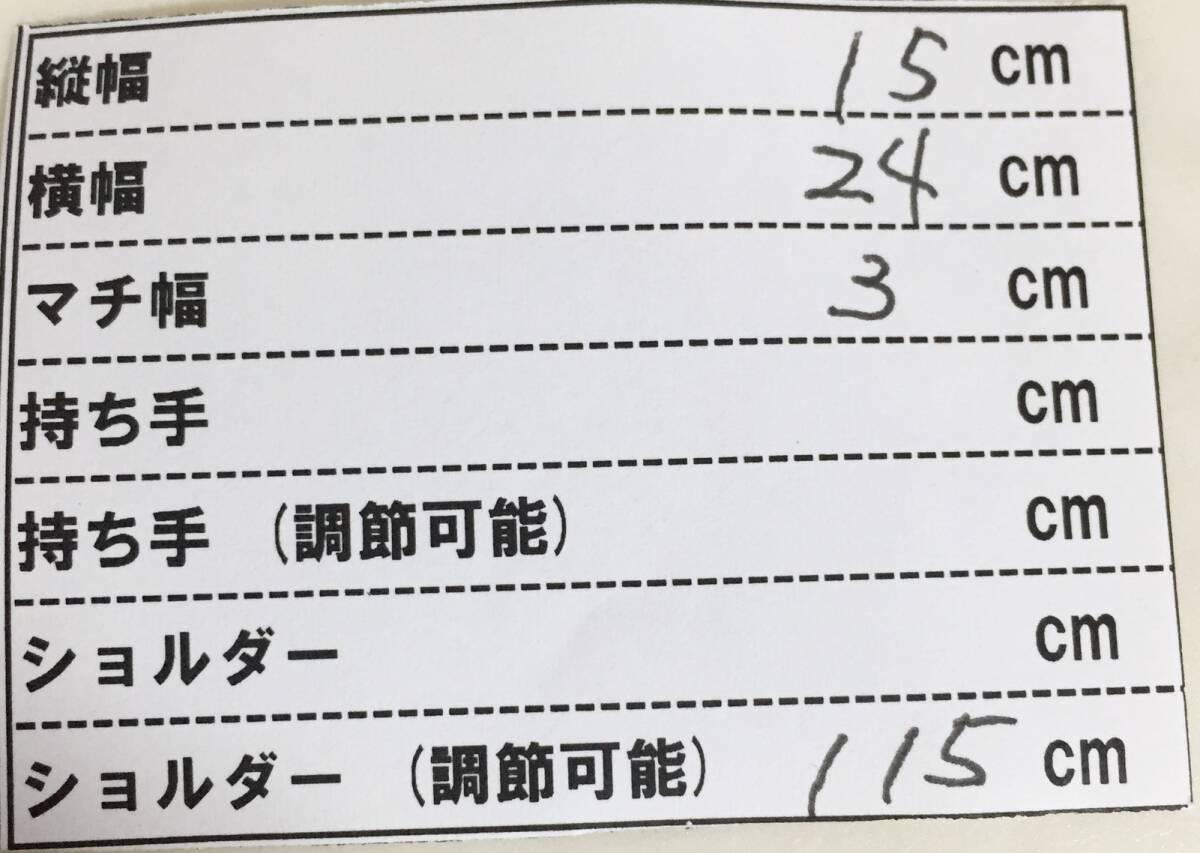 縦幅 15 cm
横幅 24 cm
マチ幅 3 cm
持ち手 cm
持ち手 (調節可能) cm
ショルダー cm
ショルダー (調節可能) 115 cm